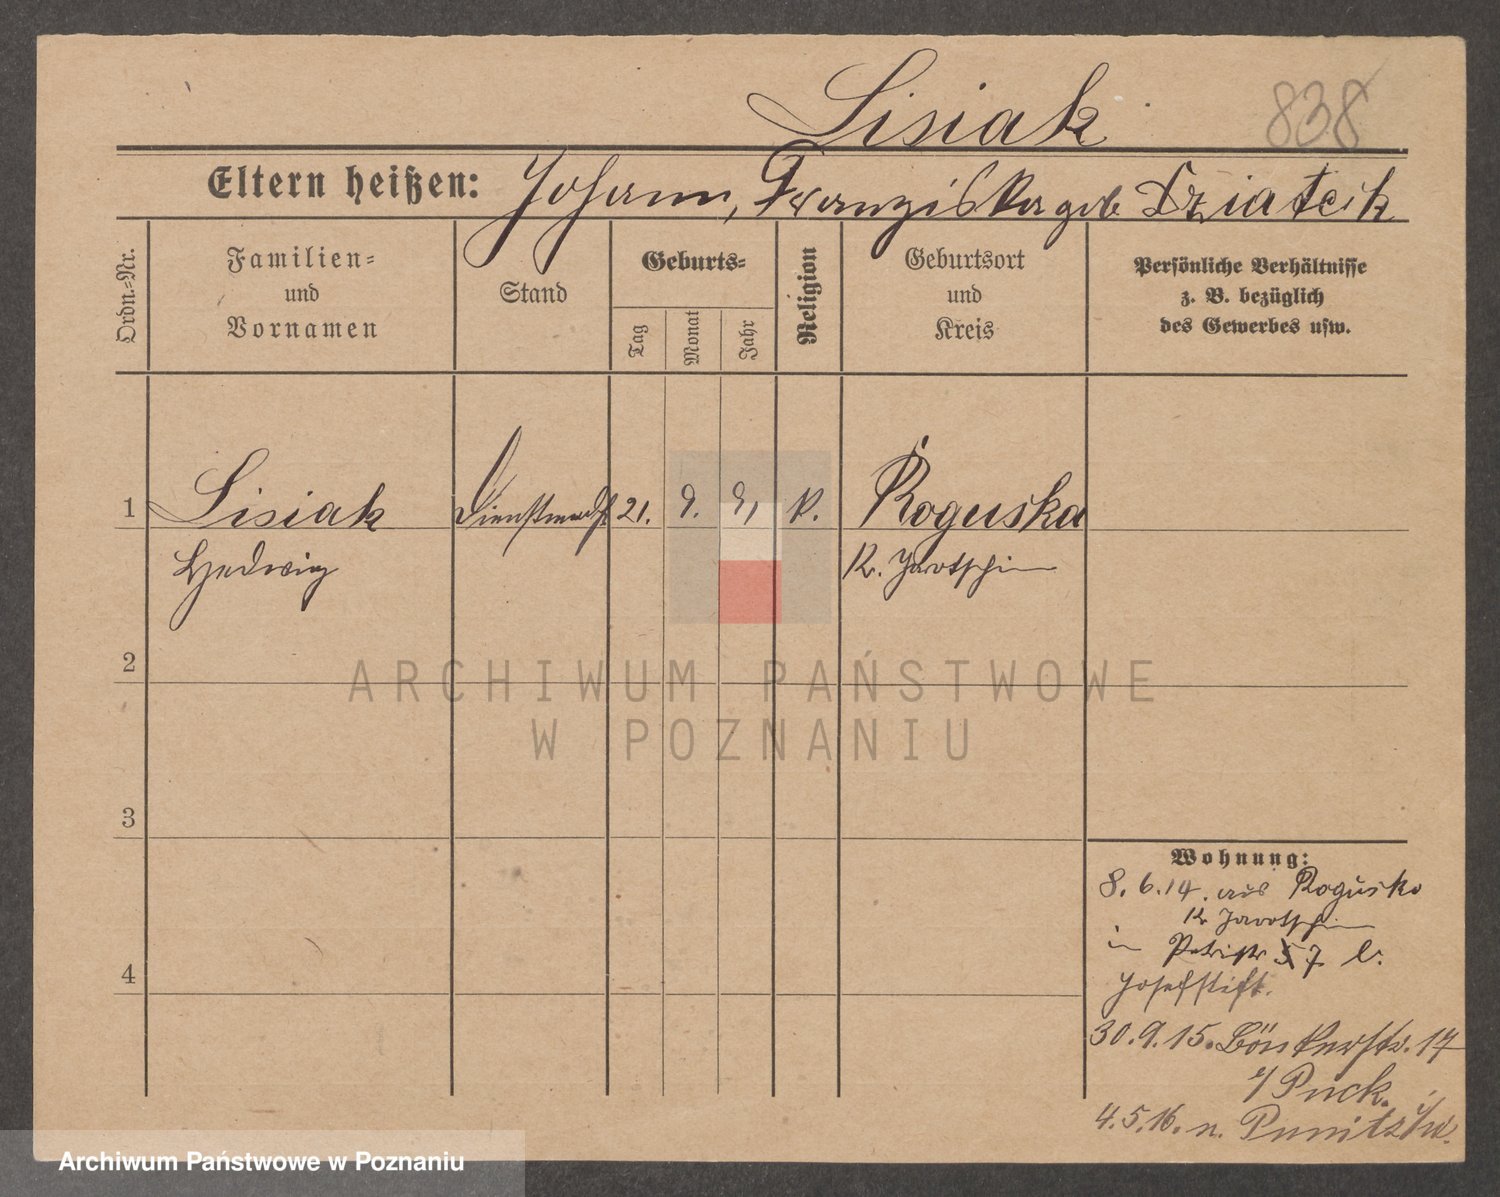 Lisiak 838
Eltern heißen: Johann, Franziska geb Dziatcik
Ordn.-Nr.
Familien-
und
Vornamen
Stand
Geburts-
Tag
Monat
Jahr
Religion
Geburtsort
und
Kreis
Persönliche Verhältnisse
z. B. bezüglich
des Gewerbes usw.
1 Lisiak Dienstmädch 21. 9. 91 k. Roguska
Hedwig Kr. Jarotschin
2
3
4
Wohnung:
8.6.14. aus Rogusko
Kr Jarotschin
in Petristr 7 b.
Josefstift.
30.9.15. Bönkerstr. 17
b/ Puck.
4.5.16. n. Punitz
ARCHIWUM PAŃSTWOWE
W POZNANIU
Archiwum Państwowe w Poznaniu